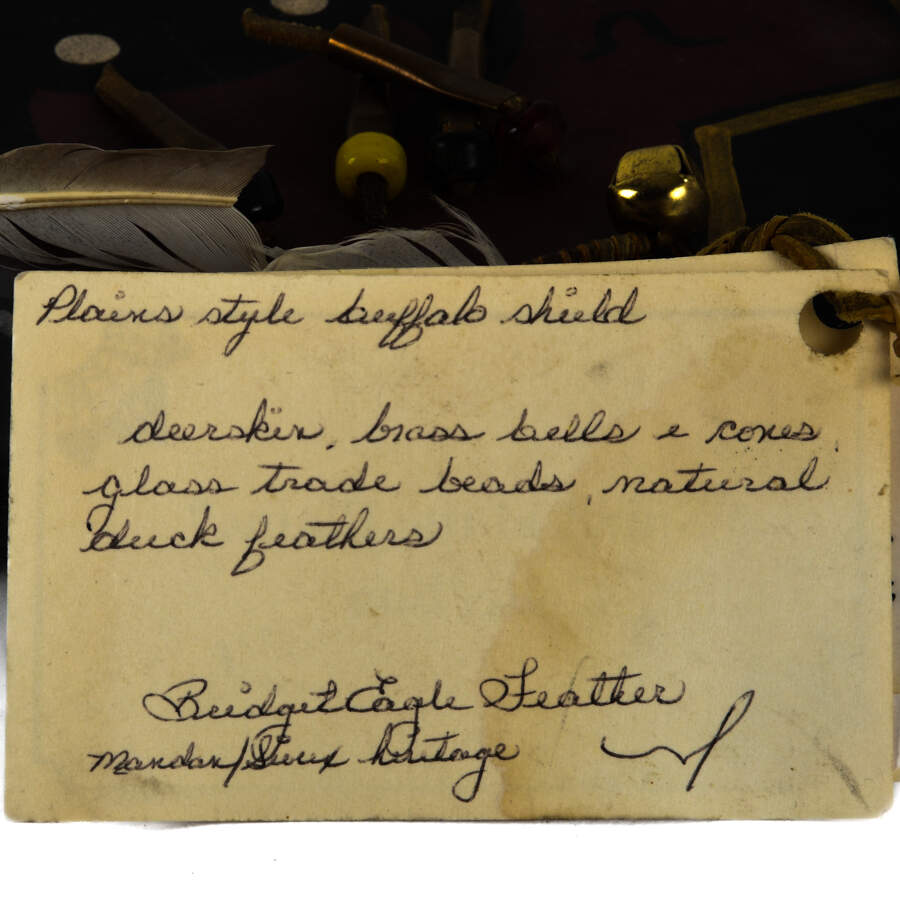 Plains style buffalo shield
deerskin, brass bells & cones,
glass trade beads, natural
duck feathers
Bridget Eagle Feather
Mandan/Sioux heritage